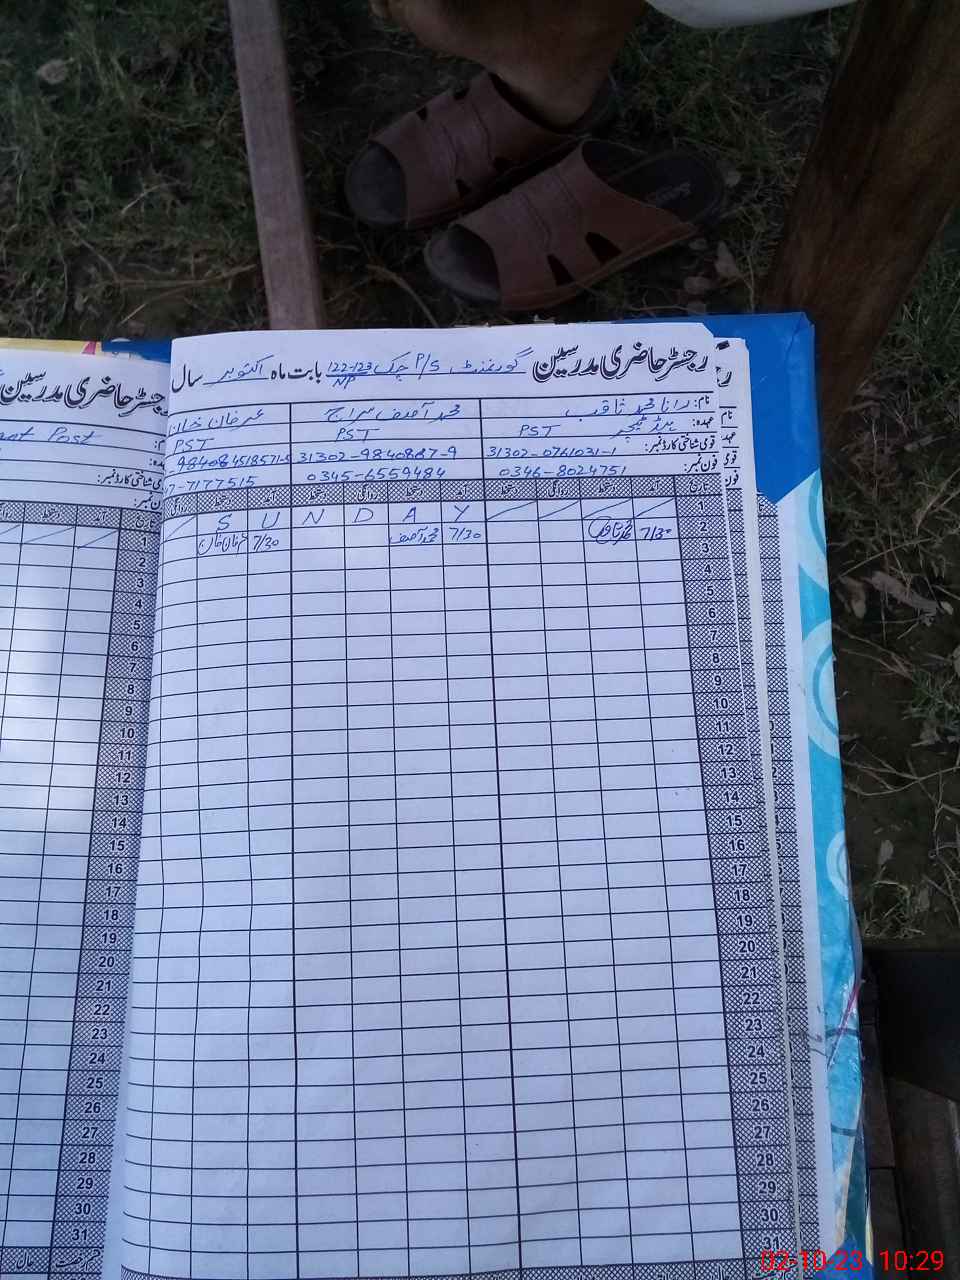 رجسٹر حاضری مدرسین گورنمنٹ P/S چک 122-123 NP بابت ماہ اکتوبر سال
نام: رانا محمد ثاقب محمد آصف سراج عرفان خان
عہدہ: ہیڈ ٹیچر PST PST PST
قومی شناختی کارڈ نمبر: 31302-0761031-1 31302-9840887-9
فون نمبر: 0346-8024751 0345-6559484 7177515
تاریخ آمد دستخط روانگی دستخط آمد دستخط روانگی دستخط آمد دستخط روانگی
1 S U N D A Y
2 7/30 محمد ثاقب 7/30 محمد آصف 7/30 عرفان خان
3
4
5
6
7
8
9
10
11
12
13
14
15
16
17
18
19
20
21
22
23
24
25
26
27
28
29
30
31
رجسٹر حاضری مدرسین
Post
تاریخ آمد دستخط
1
2
3
4
5
6
7
8
9
10
11
12
13
14
15
16
17
18
19
20
21
22
23
24
25
26
27
28
29
30
31
02-10-23 10:29